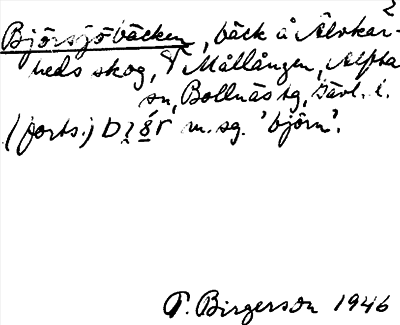 2
Björsjöbäcken, bäck å Älvkar-
heds skog, V Mållången, Alfta
sn, Bollnäs tg, Gävl. l.
(forts.) m. sg. 'björn'.
T. Birgerson 1946